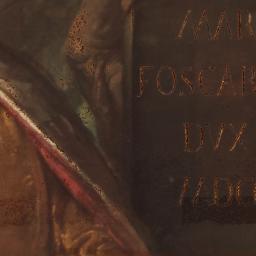 MAR
FOSCAR
DVX
MDC